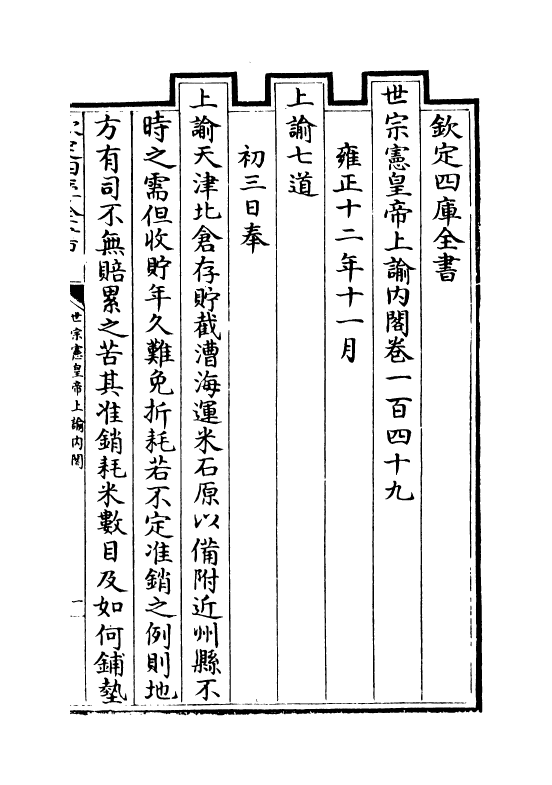 欽定四庫全書
世宗憲皇帝上諭内閣卷一百四十九
雍正十二年十一月
上諭七道
初三日奉
上諭天津北倉存貯截漕海運米石原以備附近州縣不
時之需但收貯年久難免折耗若不定准銷之例則地
方有司不無賠累之苦其准銷耗米數目及如何鋪墊
世宗憲皇帝上諭内閣
一